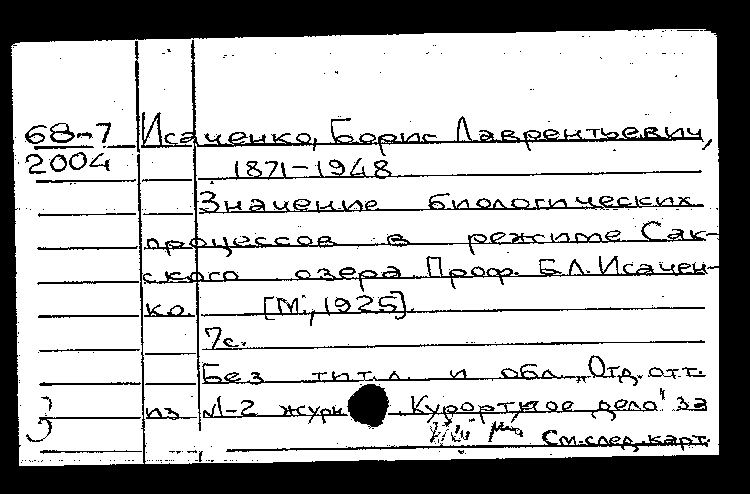 68-7 Исаченко, Борис Лаврентьевич,
2004 1871-1948
Значение биологических
процессов в режиме Сак-
ского озера. Проф. Б.Л. Исачен-
ко. [М., 1925].
7с.
Без тит. л. и обл. „Отд. отт.
из №1-2 журн. Курортное дело" за
См. след. карт.